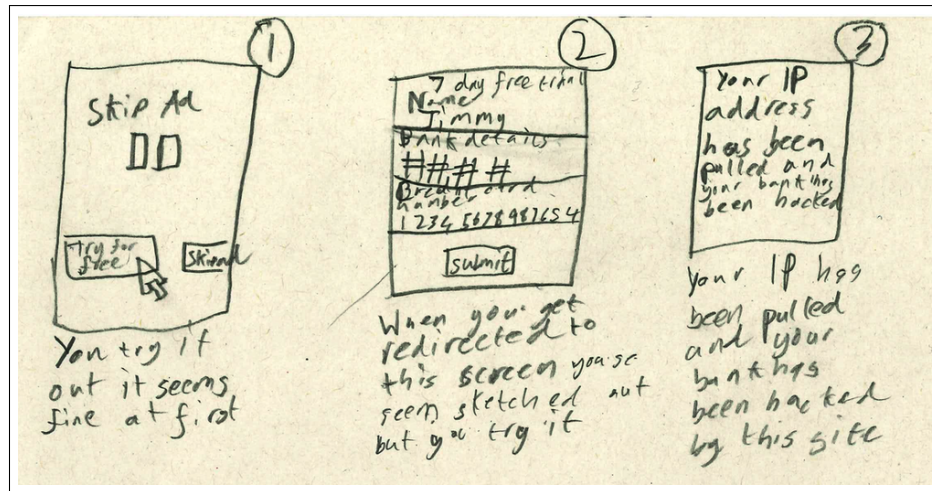 1
Skip Ad
try for
free
Skip ad
You try it
out it seems
fine at first
2
7 day free trial
Name
Jimmy
Bank details
####
Breditcard
number
1234 5678987654
submit
When you get
redirected to
this screen you
seem sketched out
but you try it
3
Your IP
address
has been
pulled and
your bank has
been hacked
Your IP has
been pulled
and your
bank has
been hacked
by this site